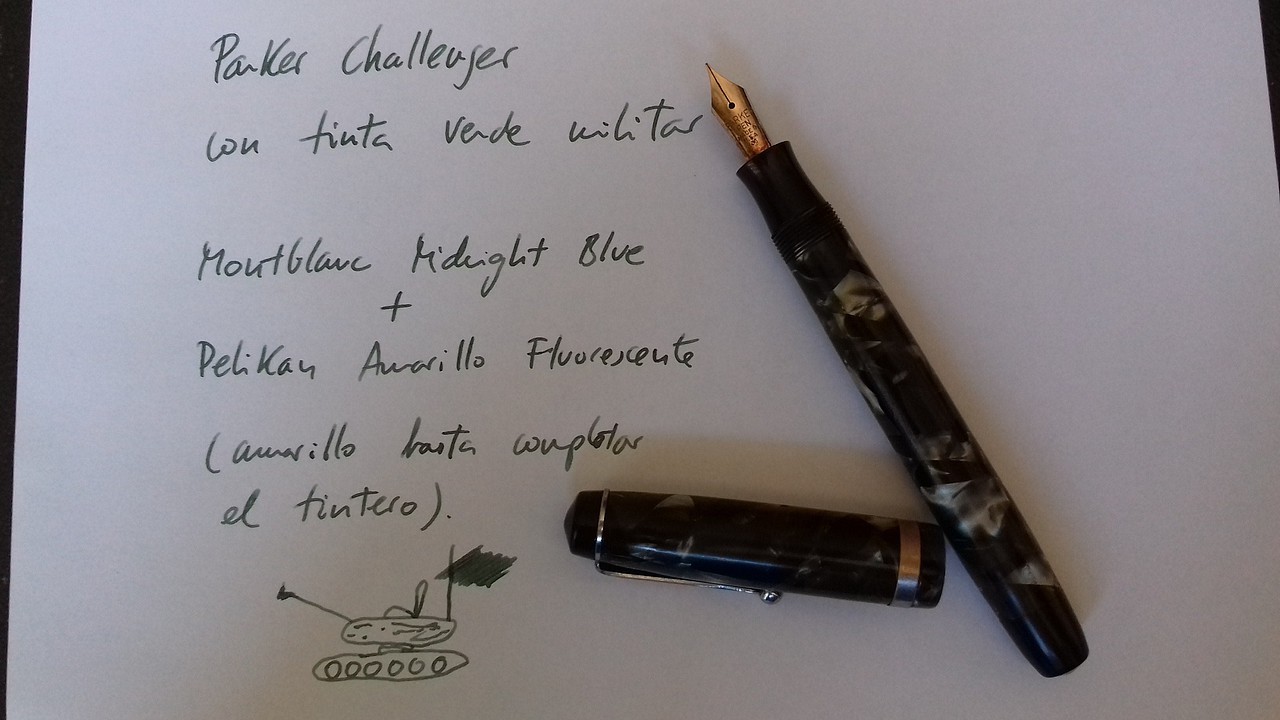 Parker Challenger
con tinta verde militar
Montblanc Midnight Blue
+
Pelikan Amarillo Fluorescente
(amarillo hasta completar
el tintero).